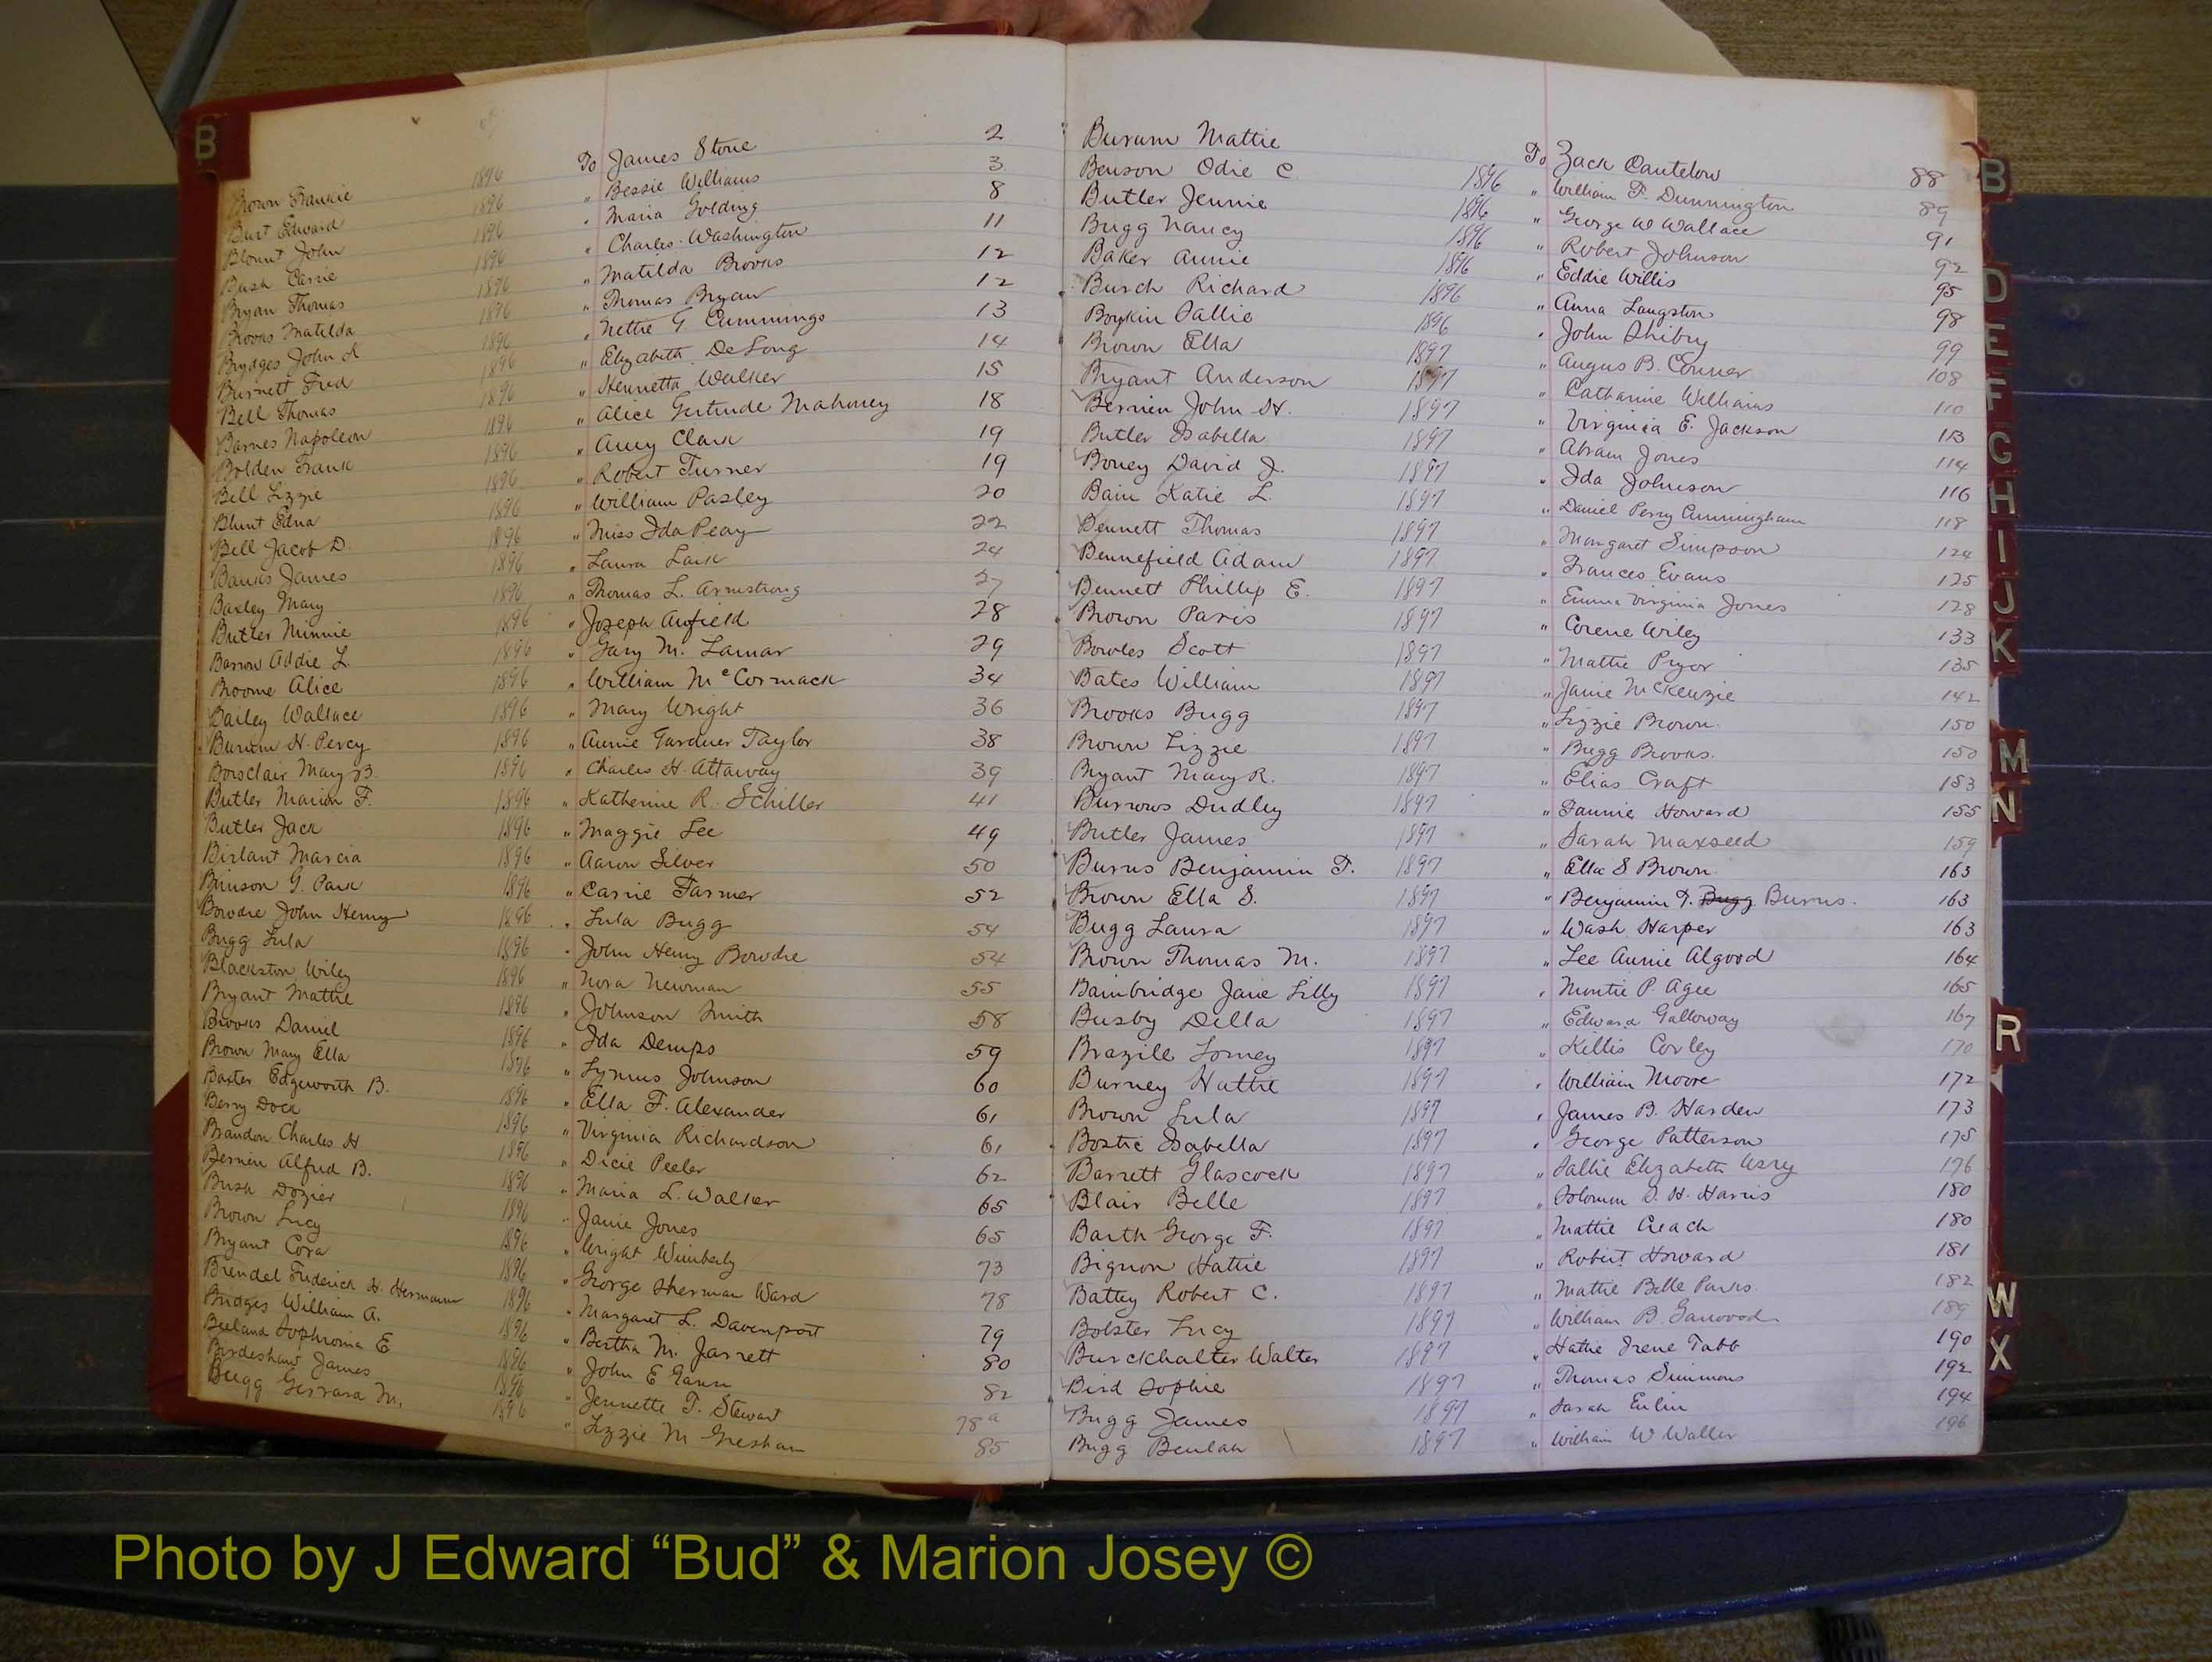 B
Brown Frankie 1896 To James Stone 2
Burt Edward 1896 " Bessie Williams 3
Blount John 1896 " Maria Golding 8
Bush Carrie 1896 " Charles Washington 11
Bryan Thomas 1896 " Matilda Brooks 12
Brooks Matilda 1896 " Thomas Bryan 12
Brydges John A 1896 " Nettie G. Cummings 13
Burnett Fred 1896 " Elizabeth DeLong 14
Bell Thomas 1896 " Henrietta Walker 15
Barnes Napoleon 1896 " Alice Gertrude Mahoney 18
Bolden Frank 1896 " Amy Clark 19
Bell Lizzie 1896 " Robert Turner 19
Blunt Edna 1896 " William Pasley 20
Bell Jacob D. 1896 " Miss Ida Peay 22
Banks James 1896 " Laura Lark 24
Baxley Mary 1896 " Thomas L. Armstrong 27
Butler Minnie 1896 " Joseph Anfield 28
Barrow Addie L. 1896 " Gary M. Lamar 29
Broome Alice 1896 " William McCormack 34
Bailey Wallace 1896 " Mary Wright 36
Burum H. Percy 1896 " Annie Gardner Taylor 38
Boisclair Mary B. 1896 " Charles H. Attaway 39
Butler Marion F. 1896 " Katherine R. Schiller 41
Butler Jack 1896 " Maggie Lee 49
Birlant Marcia 1896 " Aaron Silver 50
Brinson G. Park 1896 " Carrie Farmer 52
Bowdre John Henry 1896 " Lula Bugg 54
Bugg Lula 1896 " John Henry Bowdre 54
Blackston Wiley 1896 " Nora Newman 55
Bryant Mattie 1896 " Johnson Smith 58
Brooks Daniel 1896 " Ida Demps 59
Brown Mary Ella 1896 " Lymus Johnson 60
Baxter Edgeworth B. 1896 " Ella F. Alexander 61
Berry Dock 1896 " Virginia Richardson 61
Brandon Charles H 1896 " Dicie Peeler 62
Berrien Alfred B. 1896 " Maria L. Walker 65
Bush Dozier 1896 " Janie Jones 65
Brown Lucy 1896 " Wright Wimberly 73
Bryant Cora 1896 " George Sherman Ward 78
Brendel Frederick H. Hermann 1896 " Margaret L. Davenport 79
Bridges William A. 1896 " Bertha M. Jarrett 80
Beeland Sophronia E 1896 " John E Gann 82
Birdeshaw James 1896 " Jennette T. Stewart 78a
Bugg Gerrara M. 1896 " Lizzie M Gresham 85
Burum Mattie 1896 To Zack Cantelow 88
Benson Odie C. 1896 " William F. Dunnington 89
Butler Jennie 1896 " George W Wallace 91
Bugg Nancy 1896 " Robert Johnson 92
Baker Annie 1896 " Eddie Willis 95
Burch Richard 1896 " Anna Langston 98
Boykin Sallie " John Shibry 99
Brown Ella 1897 " Angus B. Conner 108
Bryant Anderson 1897 " Catharine Williams 110
Berrien John H. 1897 " Virginia E. Jackson 113
Butler Isabella 1897 " Abram Jones 114
Boney David J. 1897 " Ida Johnson 116
Bain Katie L. 1897 " Daniel Perry Cunningham 118
Bennett Thomas 1897 " Margaret Simpson 124
Bennefield Adam 1897 " Frances Evans 125
Bennett Phillip E. 1897 " Emma Virginia Jones 128
Brown Paris 1897 " Corene Wiley 133
Bowles Scott 1897 " Mattie Pryor 135
Bates William 1897 " Janie McKenzie 142
Brooks Bugg 1897 " Lizzie Brown 150
Brown Lizzie 1897 " Bugg Brooks. 150
Bryant Mary R. 1897 " Elias Craft 153
Burrows Dudley 1897 " Fannie Howard 155
Butler James 1897 " Sarah Maxseed 159
Burns Benjamin F. 1897 " Ella S Brown 163
Brown Ella S. 1897 " Benjamin F. Bugg Burns. 163
Bugg Laura 1897 " Wash Harper 163
Brown Thomas M. 1897 " Lee Annie Algood 164
Bainbridge Jane Lilly 1897 " Montie P. Agee 165
Busby Della 1897 " Edward Galloway 167
Brazile Lomey 1897 " Kellis Corley 170
Burney Hattie 1897 " William Moore 172
Brown Lula 1897 " James B. Harden 173
Bostic Isabella 1897 " George Patterson 175
Barrett Glascock 1897 " Sallie Elizabeth Usry 176
Blair Belle 1897 " Solomon D. H. Harris 180
Barth George F. 1897 " Mattie Creach 180
Bignon Hattie 1897 " Robert Howard 181
Battey Robert C. 1897 " Mattie Belle Parks. 182
Bolster Lucy 1897 " William B. Garwood 189
Burckhalter Walter 1897 " Hattie Irene Tabb 190
Bird Sophie 1897 " Thomas Simmons 192
Bugg James 1897 " Sarah Eulin 194
Bugg Beulah 1897 " William W Waller 196
B
D
E
F
G
H
I
J
K
M
N
R
W
X
Photo by J Edward “Bud” & Marion Josey ©